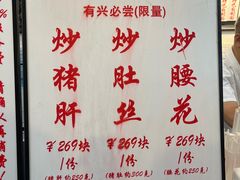 有兴必尝(限量)
炒猪肝
￥269块
1份
(猪肝约250克)
炒肚丝
￥269块
1份
(猪肚约300克)
炒腰花
￥269块
1份
(腰花约250克)